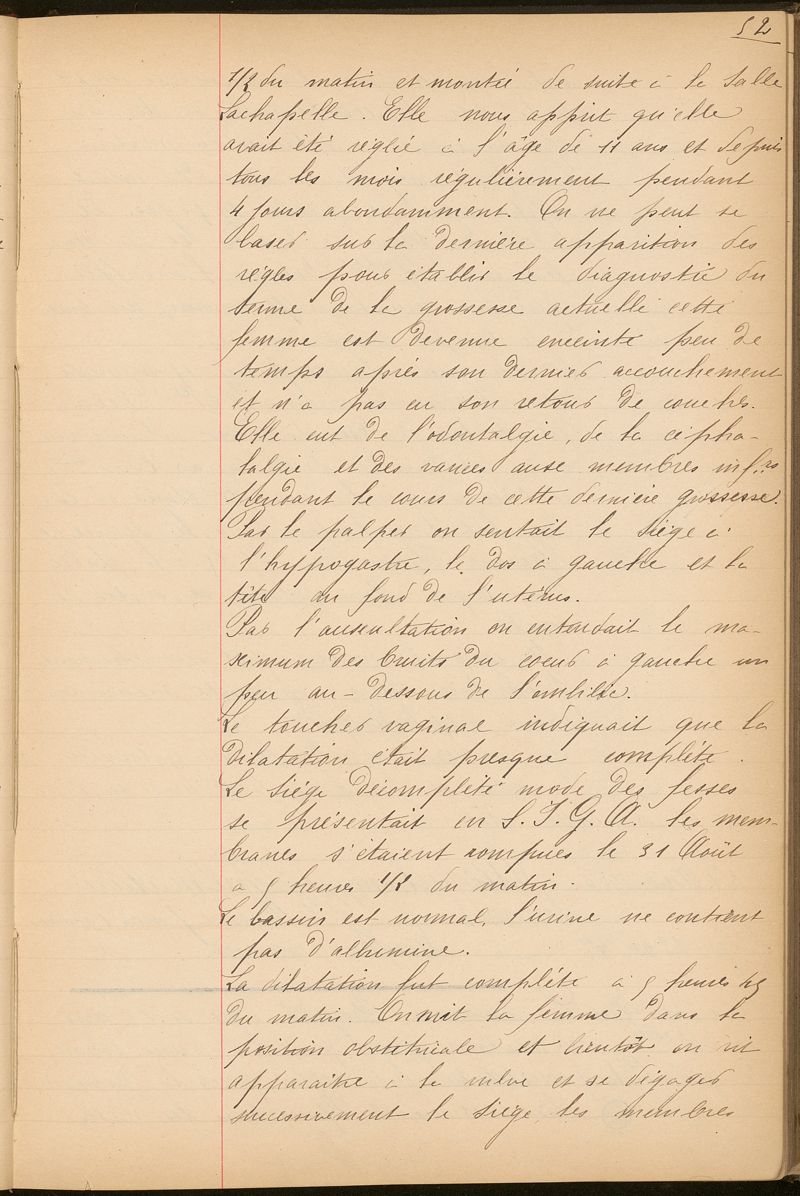 52
1/2 du matin et montée de suite à la salle
Lachapelle. Elle nous apprit qu'elle
avait été réglée à l'âge de 11 ans et depuis
tous les mois régulièrement pendant
4 jours abondamment. On ne peut se
baser sur la dernière apparition des
règles pour établir le diagnostic du
terme de la grossesse actuelle cette
femme est devenue enceinte peu de
temps après son dernier accouchement
et n'a pas eu son retour de couches.
Elle eut de l'odontalgie, de la cépha-
lalgie et des varices aux membres infrs
pendant le cours de cette dernière grossesse.
Par le palper on sentait le siège à
l'hypogastre, le dos à gauche et la
tête au fond de l'utérus.
Par l'auscultation on entendait le ma-
ximum des bruits du coeur à gauche un
peu au-dessous de l'ombilic.
Le toucher vaginal indiquait que la
dilatation était presque complète.
Le siège décomplété mode des fesses
se présentait en S.I.G.A. les mem-
branes s'étaient rompues le 31 Août
à 5 heures 1/2 du matin.
Le bassin est normal, l'urine ne contient
pas d'albumine.
La dilatation fut complète à 5 heures 45
du matin. On mit la femme dans la
position obstétricale et bientôt on vit
apparaitre à la vulve et se dégager
successivement le siège, les membres